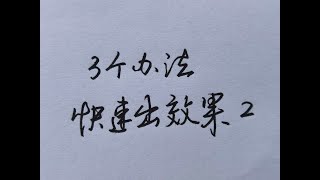 3个办法
快速出效果2